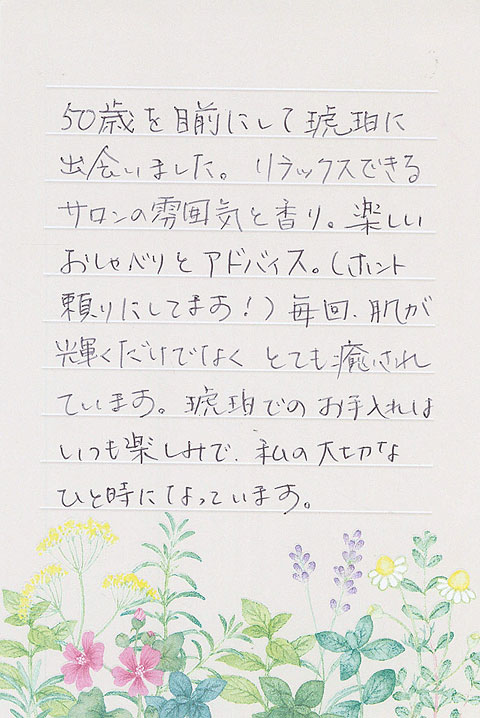 50歳を目前にして琥珀に
出会いました。リラックスできる
サロンの雰囲気と香り。楽しい
おしゃべりとアドバイス。(ホント
頼りにしてます!)毎回、肌が
輝くだけでなく とても癒され
ています。琥珀でのお手入れは
いつも楽しみで、私の大切な
ひと時になっています。